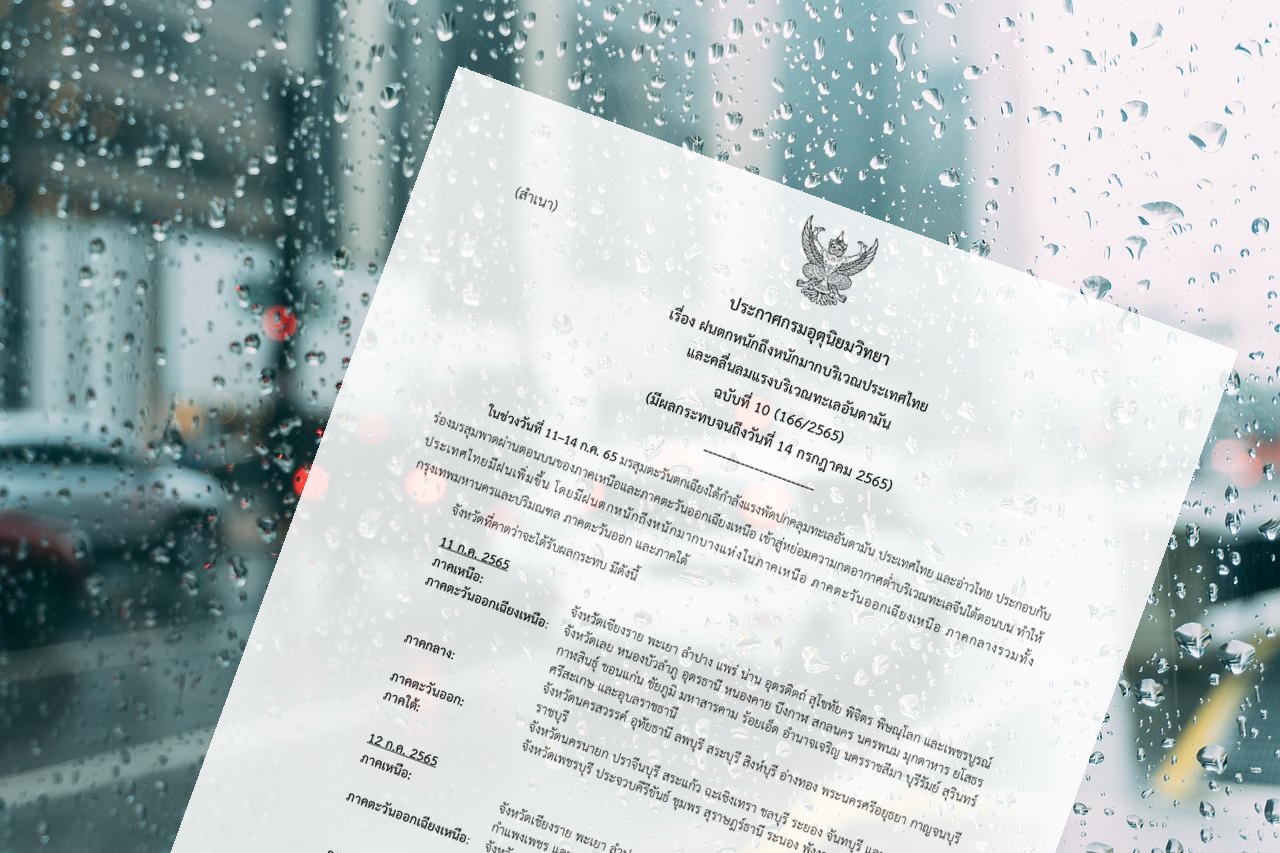 (สำเนา)
ประกาศกรมอุตุนิยมวิทยา
เรื่อง ฝนตกหนักถึงหนักมากบริเวณประเทศไทย
และคลื่นลมแรงบริเวณทะเลอันดามัน
ฉบับที่ 10 (166/2565)
(มีผลกระทบจนถึงวันที่ 14 กรกฎาคม 2565)
ในช่วงวันที่ 11–14 ก.ค. 65 มรสุมตะวันตกเฉียงใต้กำลังแรงพัดปกคลุมทะเลอันดามัน ประเทศไทย และอ่าวไทย ประกอบกับ
ร่องมรสุมพาดผ่านตอนบนของภาคเหนือและภาคตะวันออกเฉียงเหนือ เข้าสู่หย่อมความกดอากาศต่ำบริเวณทะเลจีนใต้ตอนบน ทำให้
ประเทศไทยมีฝนเพิ่มขึ้น โดยมีฝนตกหนักถึงหนักมากบางแห่งในภาคเหนือ ภาคตะวันออกเฉียงเหนือ ภาคกลางรวมทั้ง
กรุงเทพมหานครและปริมณฑล ภาคตะวันออก และภาคใต้
จังหวัดที่คาดว่าจะได้รับผลกระทบ มีดังนี้
11 ก.ค. 2565
ภาคเหนือ: จังหวัดเชียงราย พะเยา ลำปาง แพร่ น่าน อุตรดิตถ์ สุโขทัย พิจิตร พิษณุโลก และเพชรบูรณ์
ภาคตะวันออกเฉียงเหนือ: จังหวัดเลย หนองบัวลำภู อุดรธานี หนองคาย บึงกาฬ สกลนคร นครพนม มุกดาหาร ยโสธร
กาฬสินธุ์ ขอนแก่น ชัยภูมิ มหาสารคาม ร้อยเอ็ด อำนาจเจริญ นครราชสีมา บุรีรัมย์ สุรินทร์
ศรีสะเกษ และอุบลราชธานี
ภาคกลาง: จังหวัดนครสวรรค์ อุทัยธานี ลพบุรี สระบุรี สิงห์บุรี อ่างทอง พระนครศรีอยุธยา กาญจนบุรี
ราชบุรี
ภาคตะวันออก: จังหวัดนครนายก ปราจีนบุรี สระแก้ว ฉะเชิงเทรา ชลบุรี ระยอง จันทบุรี
ภาคใต้: จังหวัดเพชรบุรี ประจวบคีรีขันธ์ ชุมพร สุราษฎร์ธานี ระนอง
12 ก.ค. 2565
ภาคเหนือ: จังหวัดเชียงราย พะเยา
กำแพงเพชร
ภาคตะวันออกเฉียงเหนือ: